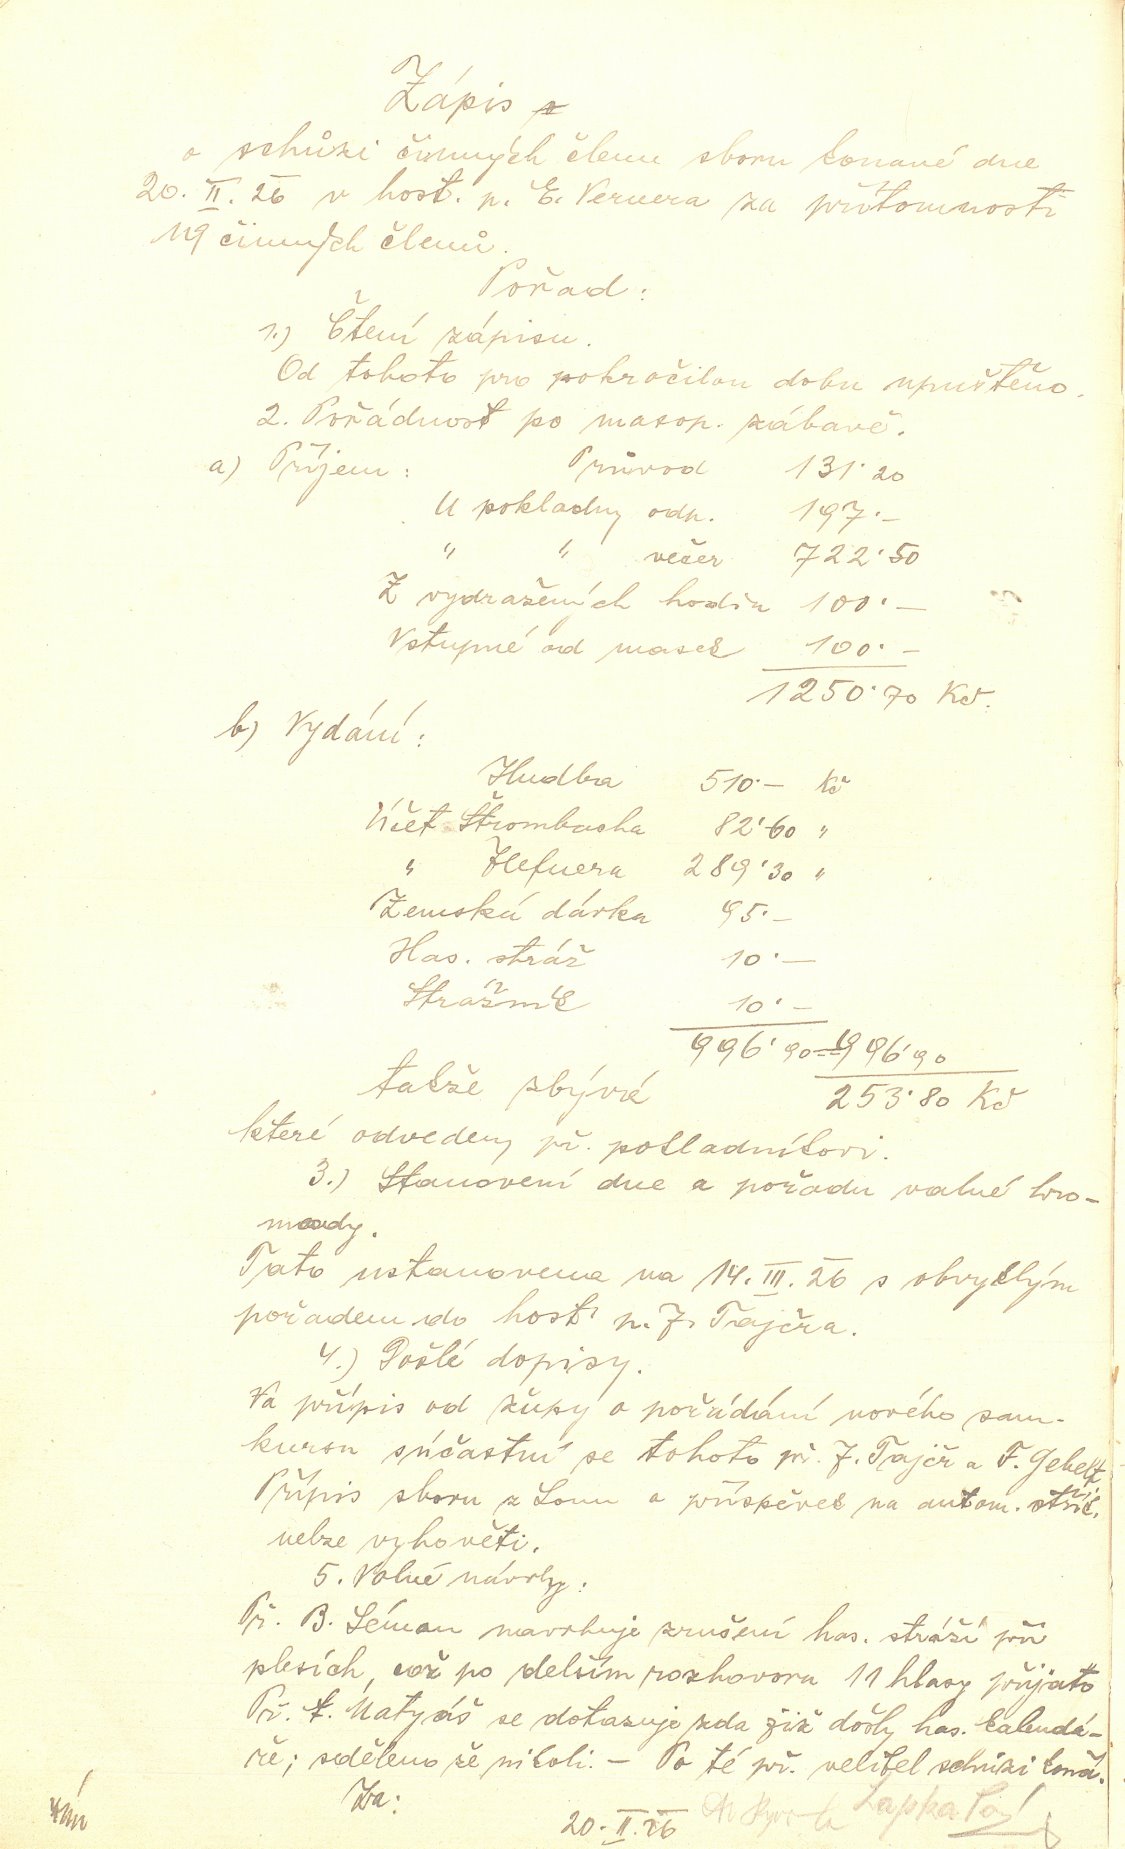 Zápis
o schůzi činných členu sboru konané dne
20. II. 26 v host. p. E. Vernera za přítomnosti
19 činných členů.
Pořad:
1.) Čtení zápisu.
Od tohoto pro pokročilou dobu upuštěno.
2. Pořádnost po masop. zábavě.
a) Příjem: Průvod 131·20
U pokladny odp. 197·—
" " večer 722·50
Z vydražených hodin 100·—
Vstupné od masek 100·—
1250·70 Kč.
b) Vydání:
Hudba 510·— Kč
Účet Štrombacha 82·60 "
" Hefnera 289·30 "
Zemská dávka 95·—
Has. stráž 10·—
Strážník 10·—
996·90 = 996·90
takže zbývá 253·80 Kč
které odvedeny př. pokladníkovi.
3.) Stanovení dne a pořadu valné hro-
mady.
Tato ustanovena na 14. III. 26 s obvyklým
pořadem do host. p. J. Tajčra.
4.) Došlé dopisy.
Na přípis od župy o pořádání nového sam.
kursu súčastní se tohoto př. J. Tajčr a F. Gebelt.
Přípis sboru z Lomu o příspěvek na autom. střík.
nelze vyhověti.
5. Volné návrhy:
Př. B. Léman navrhuje zrušení has. stráží při
plesích, což po delším rozhovoru 11 hlasy přijato
Př. F. Matyáš se dotazuje zda již došly has. kalendá-
ře; sděleno že nikoli. — Po té př. velitel schůzi konč.
Za:
20. II. 26 Lapka